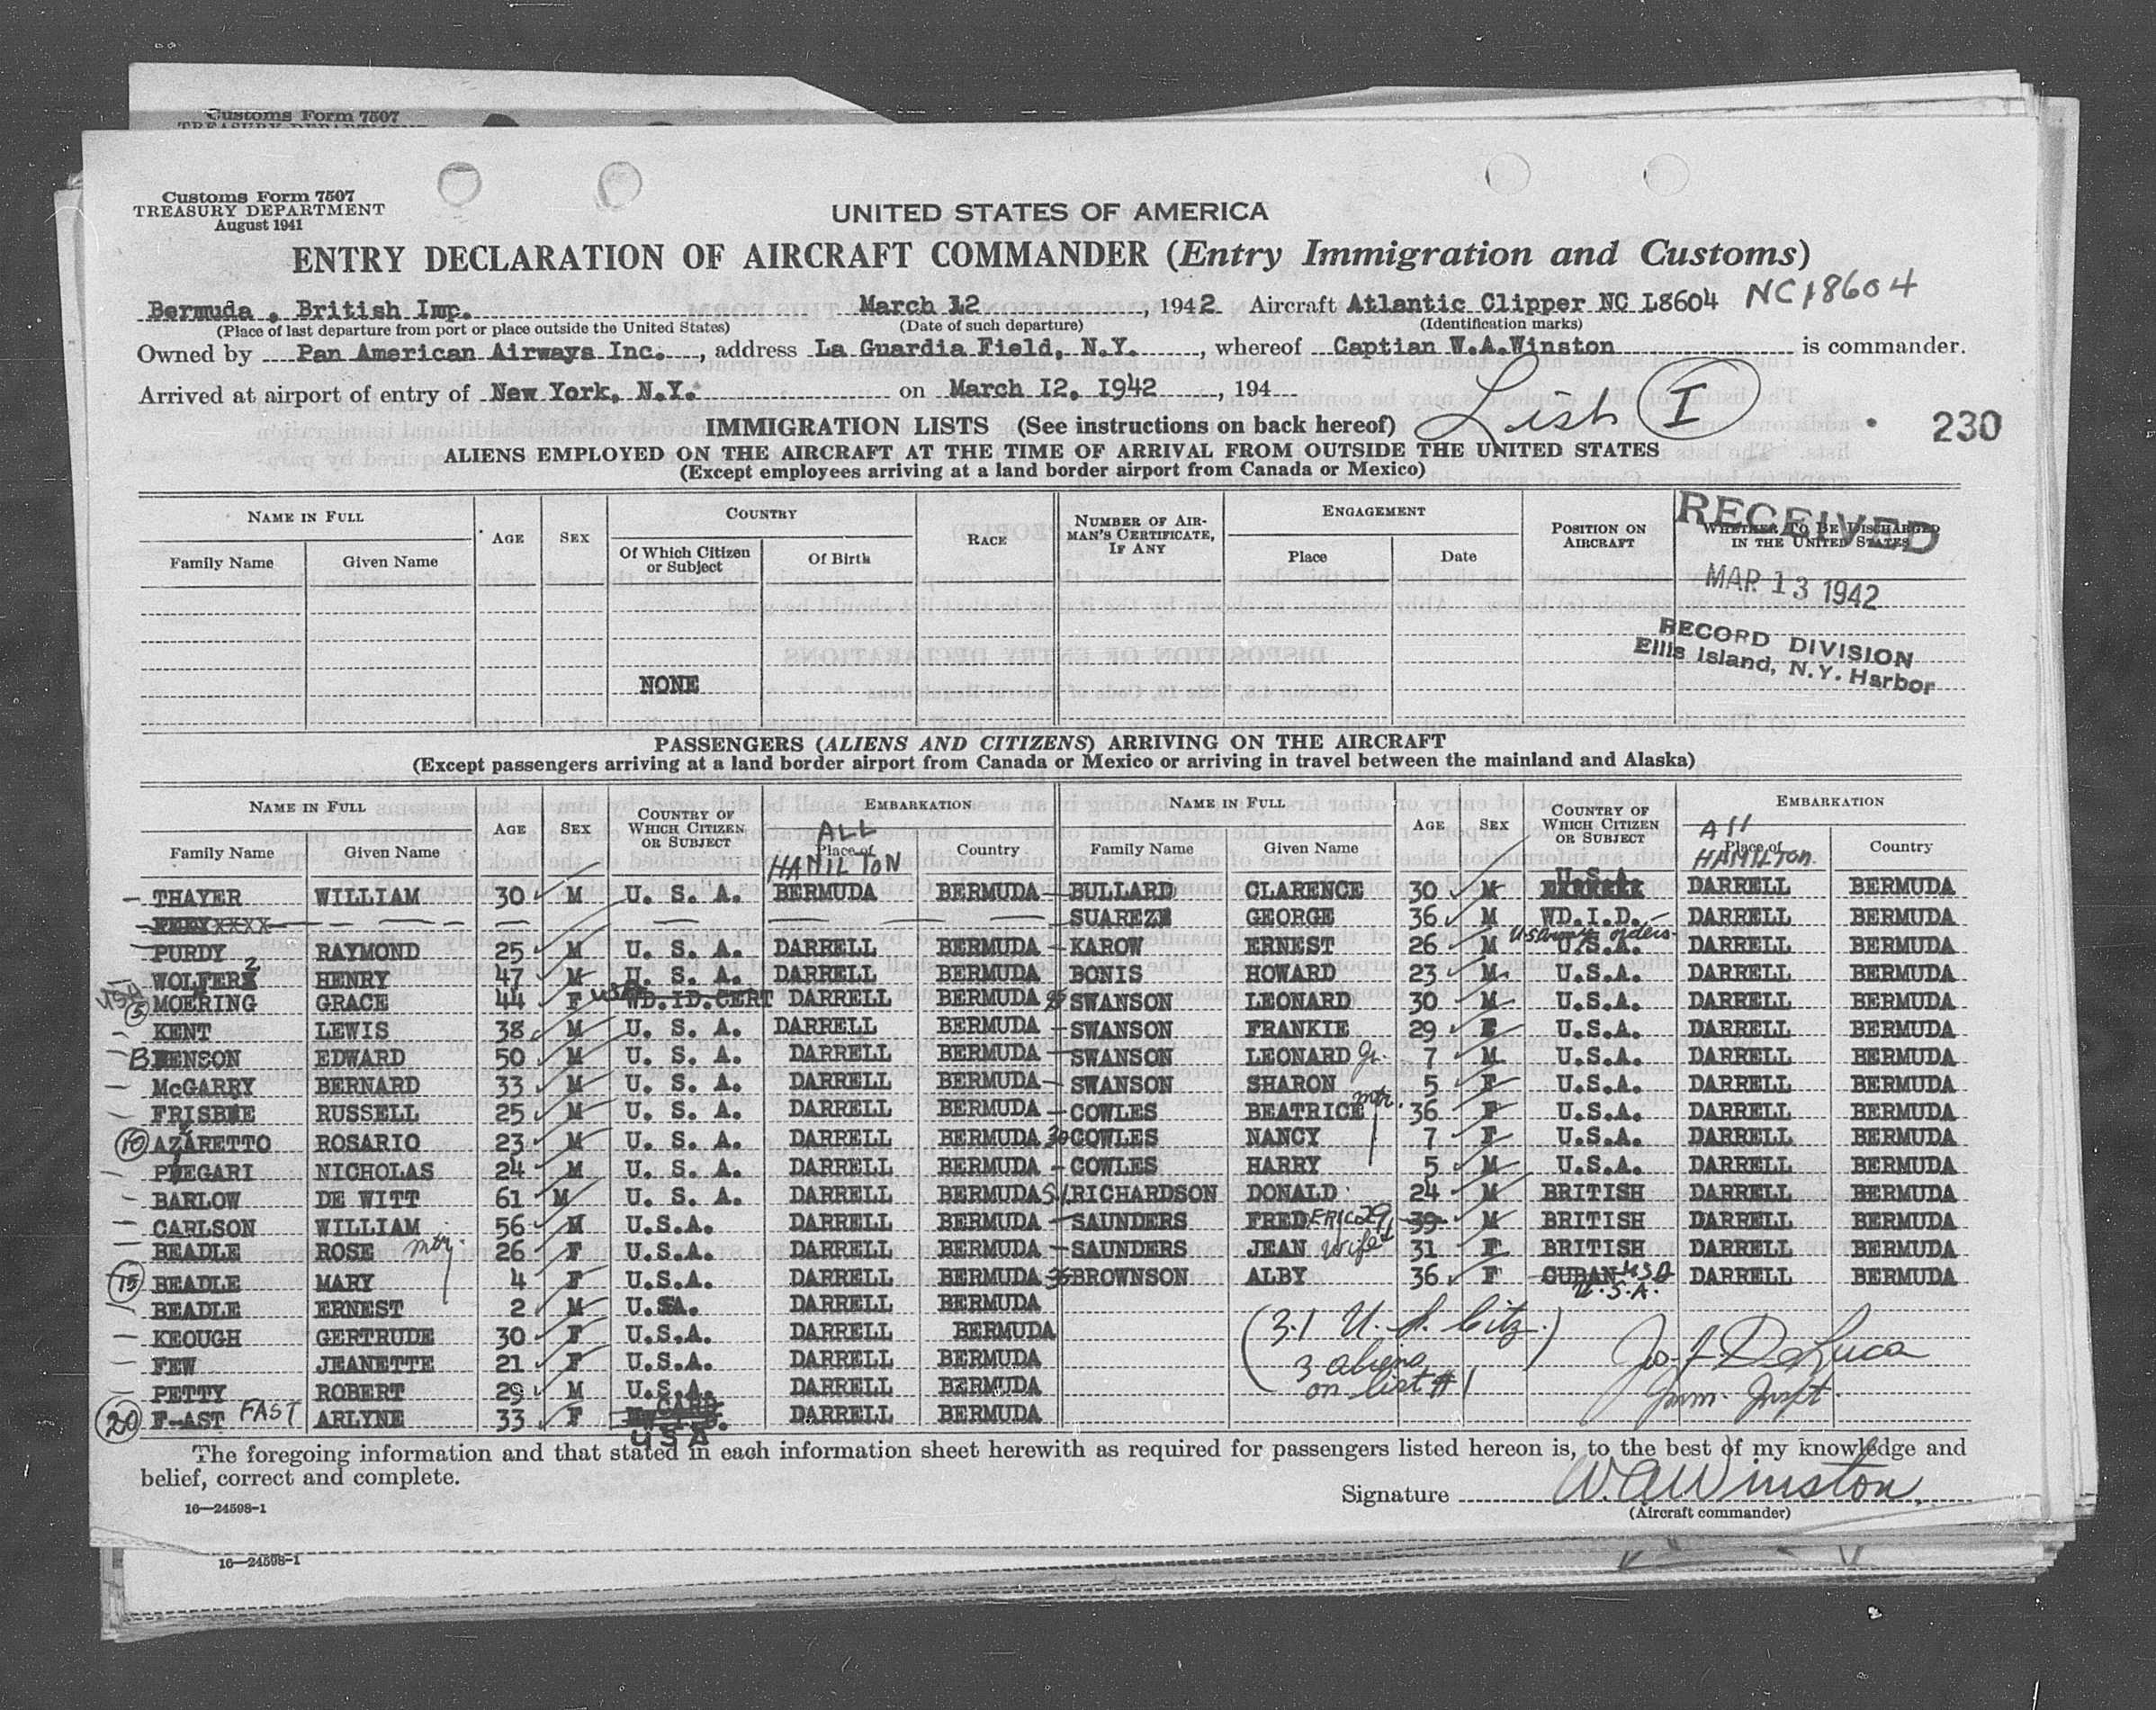 Customs Form 7507
Customs Form 7507
TREASURY DEPARTMENT
August 1941
UNITED STATES OF AMERICA
ENTRY DECLARATION OF AIRCRAFT COMMANDER (Entry Immigration and Customs)
Bermuda . British Imp. March 12, 1942 Aircraft Atlantic Clipper NC 18604 NC18604
(Place of last departure from port or place outside the United States) (Date of such departure) (Identification marks)
Owned by Pan American Airways Inc., address La Guardia Field, N.Y., whereof Captian W.A.Winston is commander.
Arrived at airport of entry of New York, N.Y. on March 12, 1942, 194
List I
IMMIGRATION LISTS (See instructions on back hereof)
230
ALIENS EMPLOYED ON THE AIRCRAFT AT THE TIME OF ARRIVAL FROM OUTSIDE THE UNITED STATES
(Except employees arriving at a land border airport from Canada or Mexico)
NAME IN FULL AGE SEX COUNTRY RACE NUMBER OF AIRMAN'S CERTIFICATE, IF ANY ENGAGEMENT POSITION ON AIRCRAFT WHETHER TO BE DISCHARGED IN THE UNITED STATES
Family Name Given Name Of Which Citizen or Subject Of Birth Place Date
RECEIVED
MAR 13 1942
RECORD DIVISION
Ellis Island, N.Y. Harbor
NONE
PASSENGERS (ALIENS AND CITIZENS) ARRIVING ON THE AIRCRAFT
(Except passengers arriving at a land border airport from Canada or Mexico or arriving in travel between the mainland and Alaska)
NAME IN FULL AGE SEX COUNTRY OF WHICH CITIZEN OR SUBJECT EMBARKATION NAME IN FULL AGE SEX COUNTRY OF WHICH CITIZEN OR SUBJECT EMBARKATION
Family Name Given Name Place of Country Family Name Given Name Place of Country
ALL HAMILTON All HAMILTON
THAYER WILLIAM 30 M U. S. A. BERMUDA BERMUDA BULLARD CLARENCE 30 M U.S.A. DARRELL BERMUDA
SUAREZ GEORGE 36 M WD.I.D. DARRELL BERMUDA
US Army orders
PURDY RAYMOND 25 M U. S. A. DARRELL BERMUDA KAROW ERNEST 26 M U.S.A. DARRELL BERMUDA
WOLFERZ HENRY 47 M U. S. A. DARRELL BERMUDA BONIS HOWARD 23 M U.S.A. DARRELL BERMUDA
USA 5 MOERING GRACE 44 F USA WD.ID.CERT DARRELL BERMUDA 25 SWANSON LEONARD 30 M U.S.A. DARRELL BERMUDA
KENT LEWIS 38 M U. S. A. DARRELL BERMUDA SWANSON FRANKIE 29 F U.S.A. DARRELL BERMUDA
BENSON EDWARD 50 M U. S. A. DARRELL BERMUDA SWANSON LEONARD Jr. 7 M U.S.A. DARRELL BERMUDA
McGARRY BERNARD 33 M U. S. A. DARRELL BERMUDA SWANSON SHARON 5 F U.S.A. DARRELL BERMUDA
FRISBIE RUSSELL 25 M U. S. A. DARRELL BERMUDA COWLES BEATRICE mtr. 36 F U.S.A. DARRELL BERMUDA
10 AZARETTO ROSARIO 23 M U. S. A. DARRELL BERMUDA 30 COWLES NANCY 7 F U.S.A. DARRELL BERMUDA
PEGARI NICHOLAS 24 M U. S. A. DARRELL BERMUDA COWLES HARRY 5 M U.S.A. DARRELL BERMUDA
BARLOW DE WITT 61 M U. S. A. DARRELL BERMUDA RICHARDSON DONALD 24 M BRITISH DARRELL BERMUDA
CARLSON WILLIAM 56 M U.S.A. DARRELL BERMUDA SAUNDERS FREDERIC 29 39 M BRITISH DARRELL BERMUDA
BEADLE ROSE mtr. 26 F U.S.A. DARRELL BERMUDA SAUNDERS JEAN wife 31 F BRITISH DARRELL BERMUDA
15 BEADLE MARY 4 F U.S.A. DARRELL BERMUDA 35 BROWNSON ALBY 36 F CUBAN USA DARRELL BERMUDA
U.S.A.
BEADLE ERNEST 2 M U.SA. DARRELL BERMUDA
KEOUGH GERTRUDE 30 F U.S.A. DARRELL BERMUDA
FEW JEANETTE 21 F U.S.A. DARRELL BERMUDA
PETTY ROBERT 29 M U.S.A. DARRELL BERMUDA
20 F-AST FAST ARLYNE 33 F CARD USA DARRELL BERMUDA
(31 U. S. Citz.)
3 aliens
on list #1
Jos. F. DeLuca
Imm. Inspt.
The foregoing information and that stated in each information sheet herewith as required for passengers listed hereon is, to the best of my knowledge and
belief, correct and complete.
Signature W.A.Winston
(Aircraft commander)
16—24598-1
16—24598-1